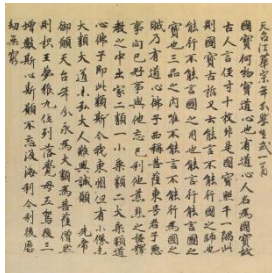 天台法華宗年分學生式一首
國寶何物寶道心也有道心人名為國寶故
古人言徑寸十枚非是國寶照千一隅此
則國寶古哲又云能言不能行國之師也
能行不能言國之用也能行能言國之
寶也三品之內唯不能言不能行為國之
賊乃有道心佛子西稱菩薩東号君子惡
事向己好事與他忘己利他慈悲之極釋
教之中出家二類一小乘類二大乘類道
心佛子即此類斯今我東州但有小像未
有大類大道未弘大人難興誠願 先帝
御願天台年分永為大類為菩薩僧然
則枳王夢猴九位列落覺母五駕後三
增數斯心斯願不忘汲海利今利後歷
劫無窮